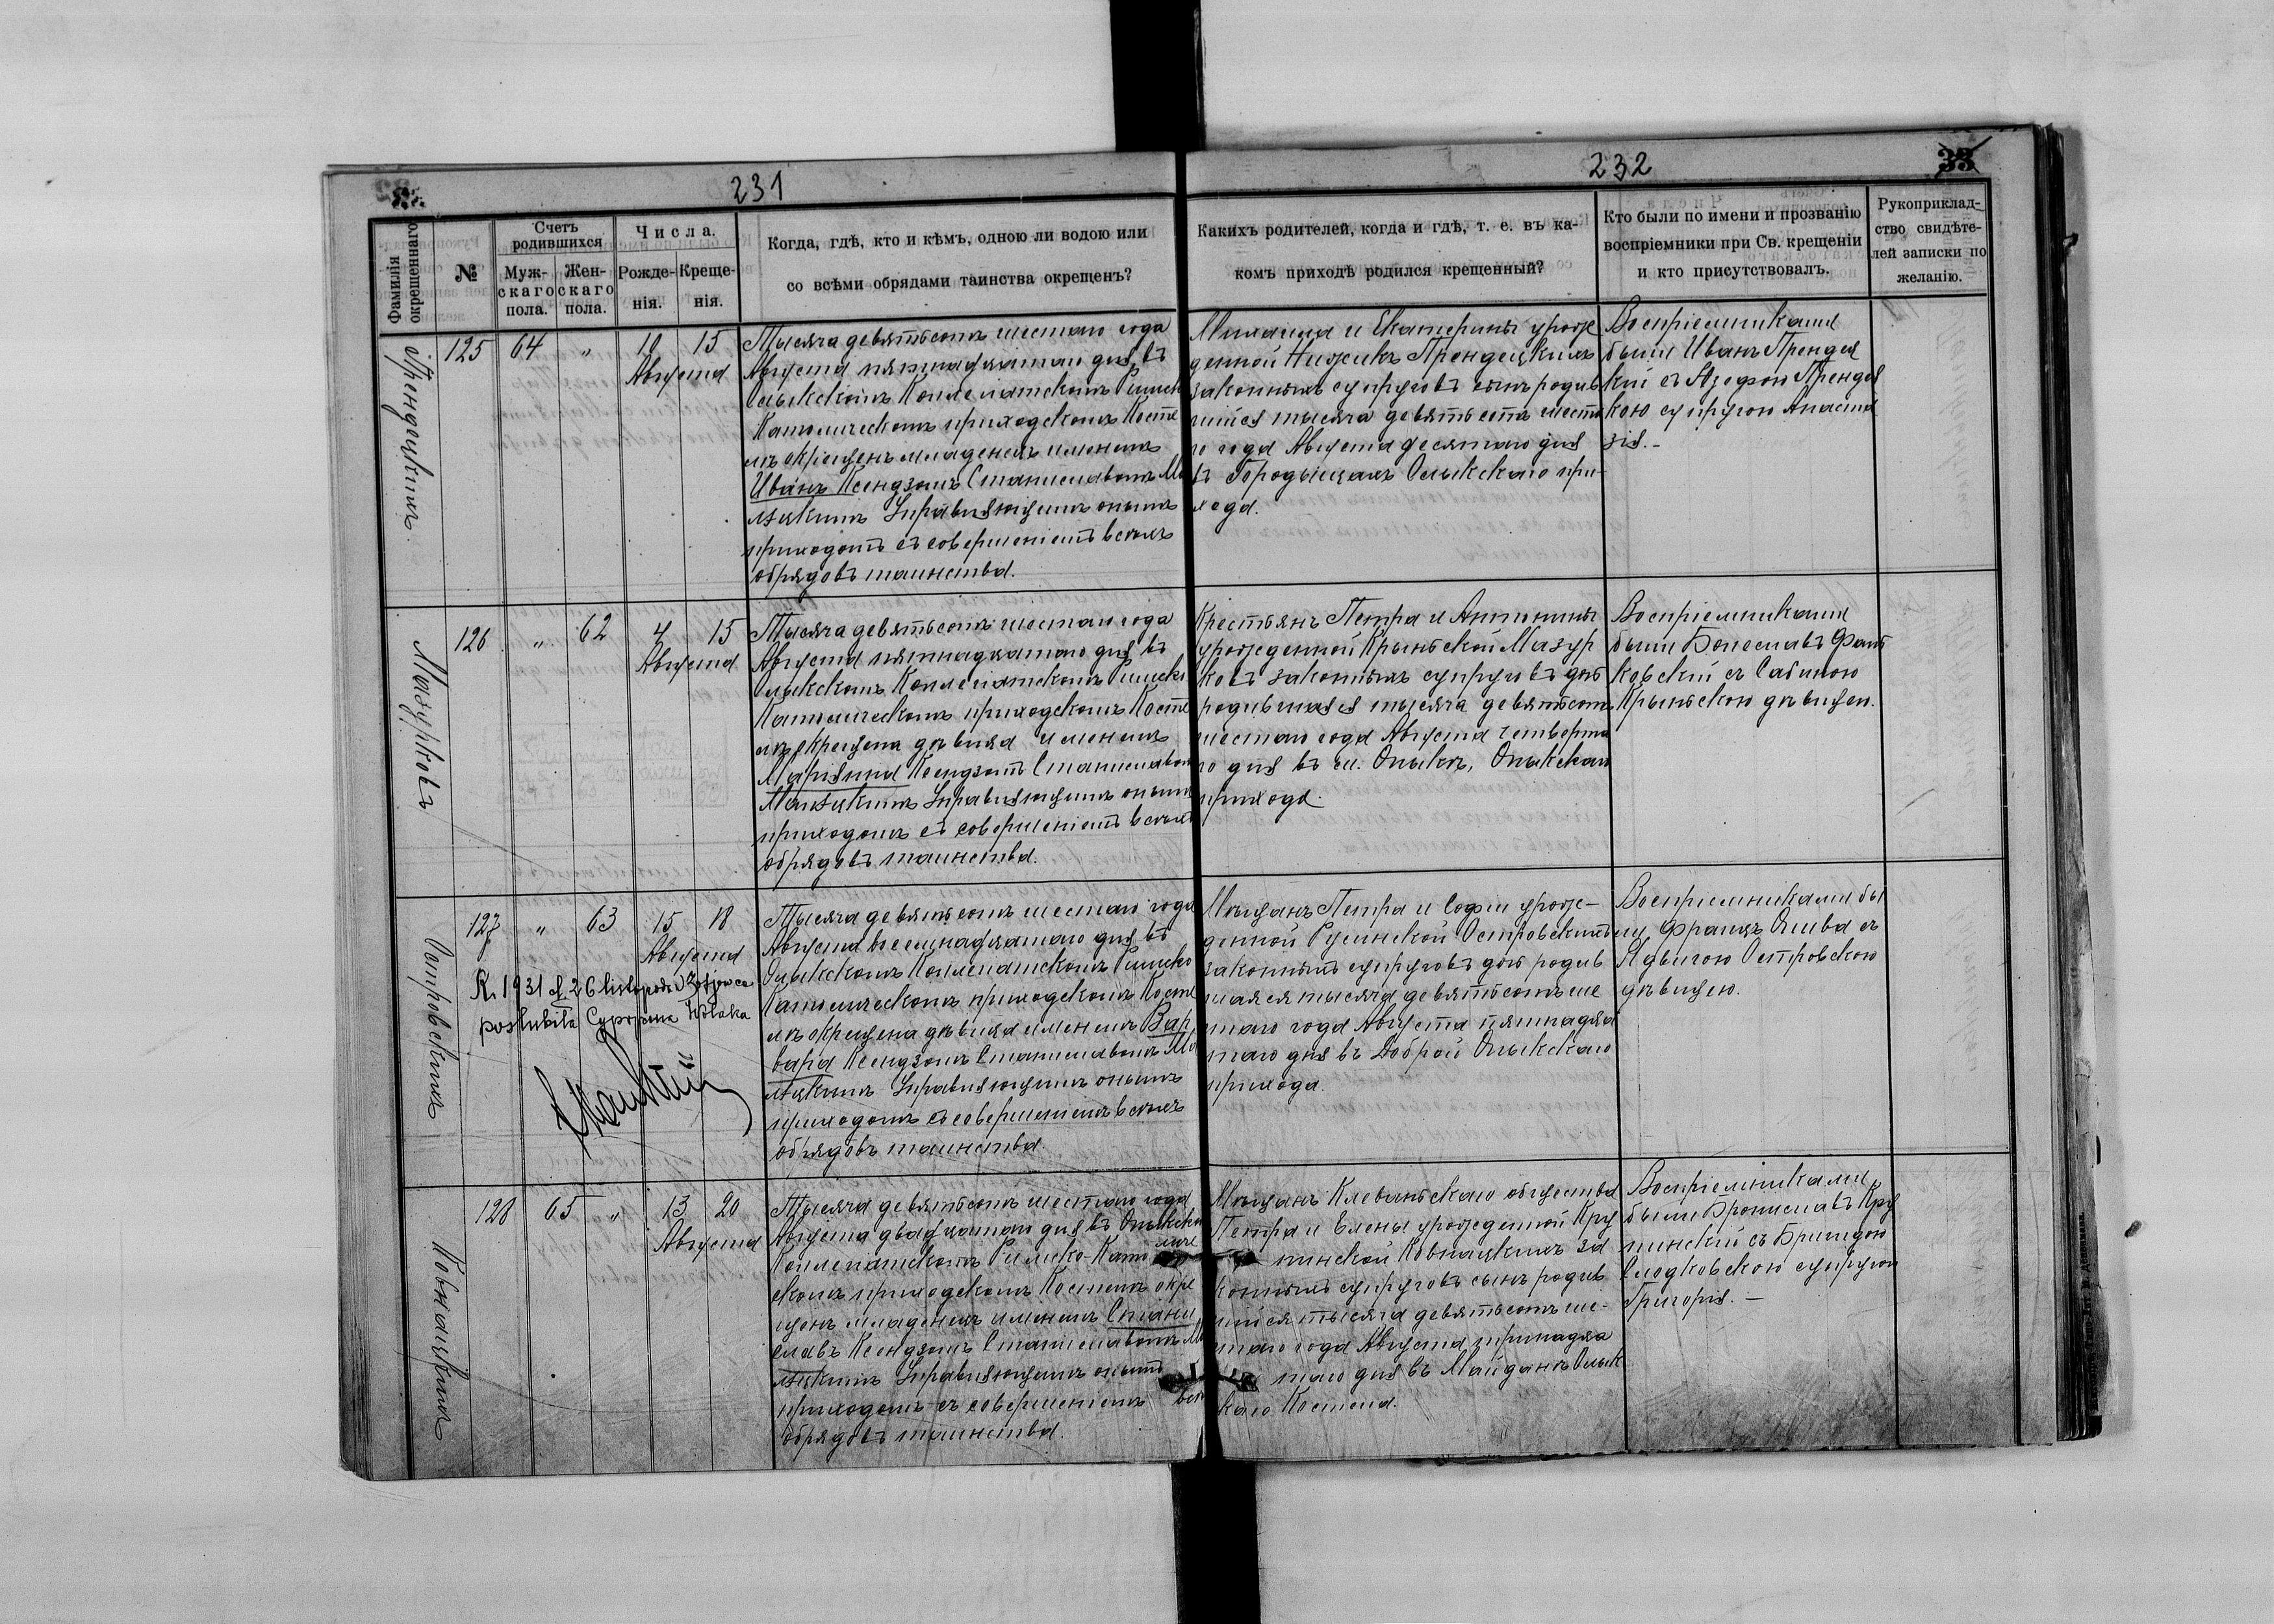 231
232
33
Фамилія окрещеннаго
№
Счетъ родившихся
Муж-скаго пола.
Жен-скаго пола.
Числа.
Рожде-нія.
Креще-нія.
Когда, гдѣ, кто и кѣмъ, одною ли водою или
со всѣми обрядами таинства окрещенъ?
Какихъ родителей, когда и гдѣ, т. е. въ ка-
комъ приходѣ родился крещенный?
Кто были по имени и прозванію
воспріемники при Св. крещеніи
и кто присутствовалъ.
Рукоприклад-
ство свидѣте-
лей записки по
желанію.
Прендецкихъ
125 64 " 10 15
Августа
Тысяча девятьсотъ шестаго года
Августа пятнадцатаго дня въ
Олыкскомъ Коллегіатскомъ Римско
Католическомъ приходскомъ Косте
лѣ окрещенъ младенецъ именемъ
Иванъ Ксендзомъ Станиславомъ Мо
Управляющимъ онымъ
приходомъ съ совершеніемъ всѣхъ
обрядовъ таинства.
Михаила и Екатерины урож
денной Прендецкихъ
законныхъ супруговъ сынъ родив
шійся тысяча девятьсотъ шеста
го года Августа десятаго дня
въ Городыщахъ Олыкскаго при-
хода.
Воспріемниками
были Иванъ Прендец
кій съ Прендец
кою супругою Анаста
зія.-
Мазурковъ
126 " 62 4 15
Августа
Тысяча девятьсотъ шестаго года
Августа пятнадцатаго дня въ
Олыкскомъ Коллегіатскомъ Римско
Католическомъ приходскомъ Косте
лѣ окрещена дѣвица именемъ
Маріянна Ксендзомъ Станиславомъ
Управляющимъ онымъ
приходомъ съ совершеніемъ всѣхъ
обрядовъ таинства.
Крестьянъ Петра и Антонины
урожденной Крыньской Мазур
ковъ законныхъ супруговъ дочь
родившаяся тысяча девятьсотъ
шестаго года Августа четверта
го дня въ м. Олыкѣ, Олыкскаго
прихода.
Воспріемниками
были Болеславъ
ковскій съ Сабиною
Крыньскою дѣвицею.
Островскихъ
127 " 63 15 18
Августа
R. 1931 d. 26 listopada
poślubiła Cyprjana Wołaka
Тысяча девятьсотъ шестаго года
Августа восемнадцатаго дня въ
Олыкскомъ Коллегіатскомъ Римско
Католическомъ приходскомъ Косте
лѣ окрещена дѣвица именемъ Вар
вара Ксендзомъ Станиславомъ Мо
Управляющимъ онымъ
приходомъ съ совершеніемъ всѣхъ
обрядовъ таинства.
Мѣщанъ Петра и Софіи урож-
денной Русинской Островскихъ
законныхъ супруговъ дочь родив
шаяся тысяча девятьсотъ ше
стаго года Августа пятнадца
таго дня въ Доброй Олыкскаго
прихода.
Воспріемниками бы
ли Францъ Олива съ
Ядвигою Островскою
дѣвицею.
Ковнацкихъ
128 65 " 13 20
Августа
Тысяча девятьсотъ шестаго года
Августа двадцатаго дня въ Олыкском
Коллегіатскомъ Римско-Католиче
скомъ приходскомъ Костелѣ окре
щенъ младенецъ именемъ Стани
славъ Ксендзомъ Станиславомъ Мо
Управляющимъ онымъ
приходомъ съ совершеніемъ всѣх
обрядовъ таинства.
Мѣщанъ Клеваньскаго общества
Петра и Елены урожденной Кру
пинской Ковнацкихъ за
конныхъ супруговъ сынъ родив
шійся тысяча девятьсотъ ше-
стаго года Августа тринадца
таго дня въ Майданѣ Олык
каго Костела.
Воспріемниками
были Брониславъ Кру
пинскій съ Бригидою
Смодковскою супругою
Григорія. -